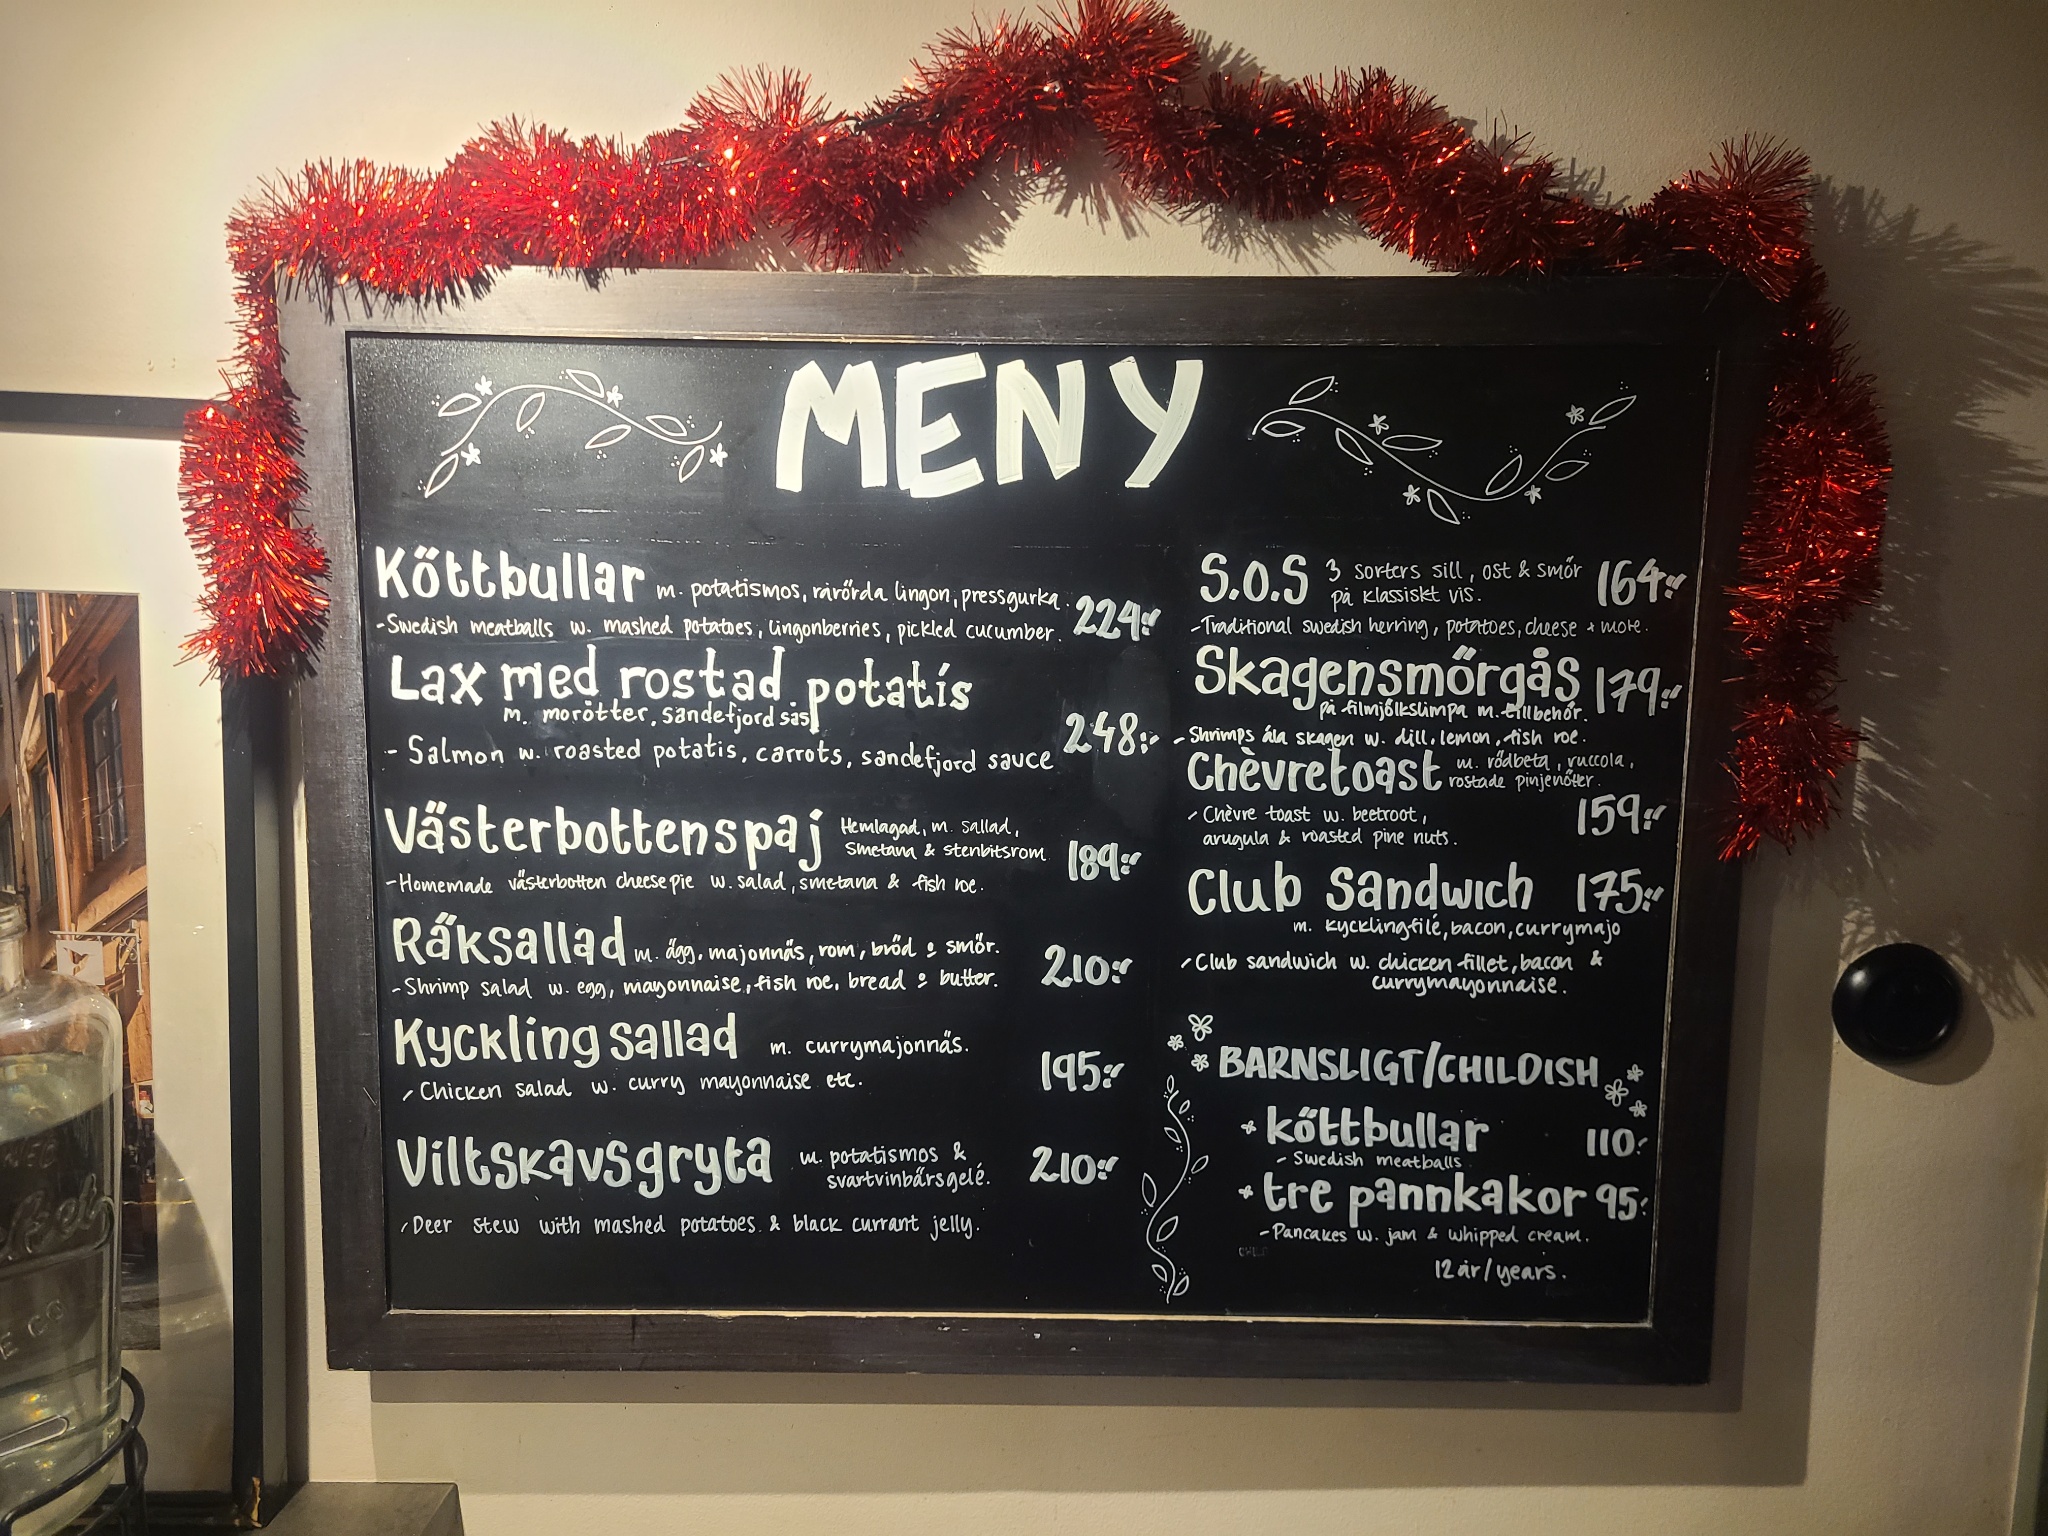 MENY
Köttbullar m. potatismos, rårörda lingon, pressgurka. 224:-
- Swedish meatballs w. mashed potatoes, lingonberries, pickled cucumber.
Lax med rostad potatis
m. morötter, sandefjord sås
248:-
- Salmon w. roasted potatis, carrots, sandefjord sauce
Västerbottenspaj Hemlagad, m. sallad,
Smetana & stenbitsrom 189:-
- Homemade västerbotten cheesepie w. salad, smetana & fish roe.
Räksallad m. ägg, majonnäs, rom, bröd & smör. 210:-
- Shrimp salad w. egg, mayonnaise, fish roe, bread & butter.
Kyckling sallad m. currymajonnäs. 195:-
- Chicken salad w. curry mayonnaise etc.
Viltskavsgryta m. potatismos &
svartvinbärsgelé. 210:-
- Deer stew with mashed potatoes & black currant jelly.
S.O.S 3 sorters sill, ost & smör
på klassiskt vis. 164:-
- Traditional swedish herring, potatoes, cheese + more.
Skagensmörgås 179:-
på filmjölkslimpa m. tillbehör.
- Shrimps ála skagen w. dill, lemon, fish roe.
Chèvretoast m. rödbeta, ruccola,
rostade pinjenötter.
- Chèvre toast w. beetroot,
arugula & roasted pine nuts. 159:-
Club Sandwich 175:-
m. kycklingfilé, bacon, currymajo
- Club sandwich w. chicken fillet, bacon &
currymayonnaise.
BARNSLIGT/CHILDISH
* köttbullar 110:
- Swedish meatballs
* tre pannkakor 95:
- Pancakes w. jam & whipped cream.
12 år/years.